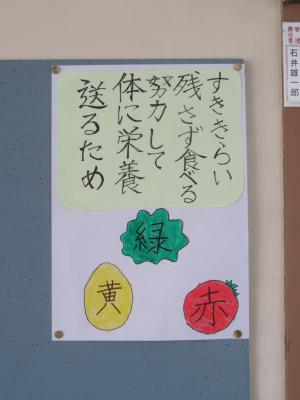 すききらい
残さず食べる
努力して
体に栄養
送るため
緑
黄
赤
石井雄一郎